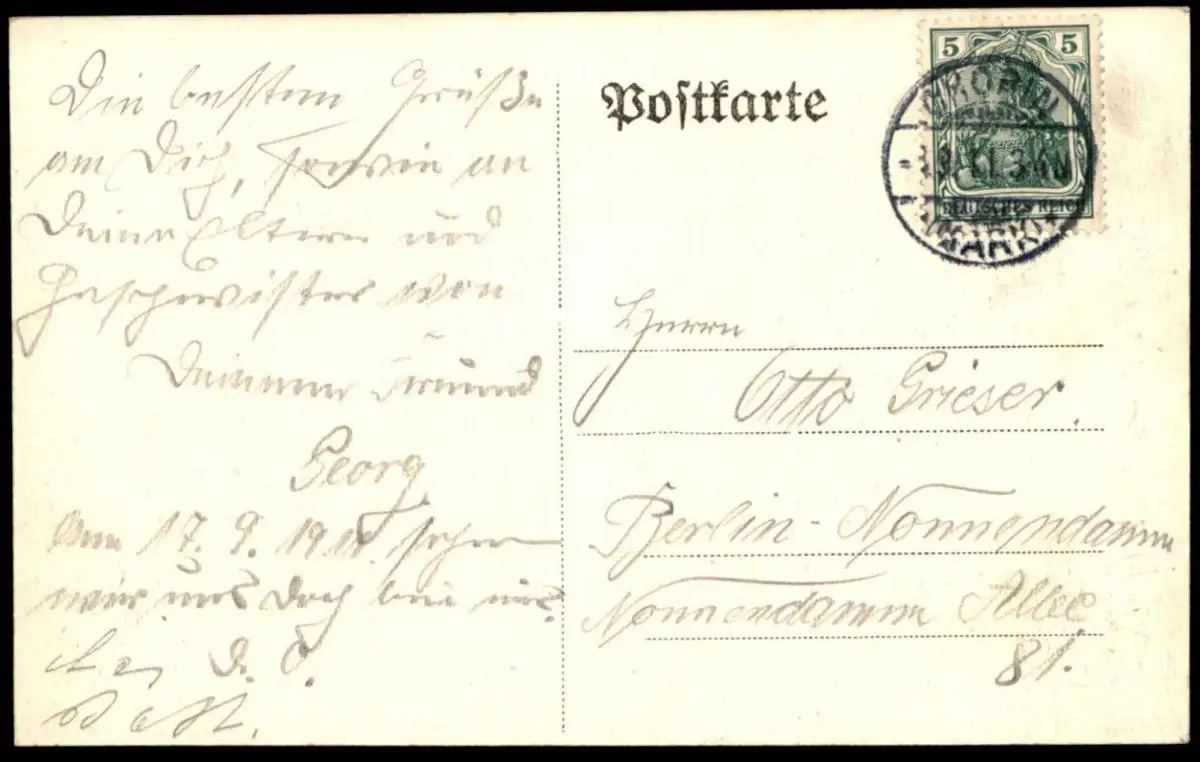 Die besten Grüße
an Dich, sowie an
Deine Eltern und
Geschwister von
Deinem Freund
Georg
Am 17. 9. 1911 sehen
wir uns doch bei uns
D. O.
Postkarte
5 5
DEUTSCHES REICH
CHORIN
(MARK)
Herrn
Otto Grieser.
Berlin-Nonnendamm
Nonnendamm Allee
81.